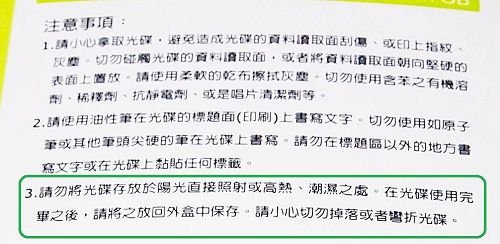 注意事項：
1.請小心拿取光碟，避免造成光碟的資料讀取面刮傷、或印上指紋、
灰塵。切勿碰觸光碟的資料讀取面，或者將資料讀取面朝向堅硬的
表面上置放。請使用柔軟的乾布擦拭灰塵。切勿使用含苯之有機溶
劑、稀釋劑、抗靜電劑、或是唱片清潔劑等。
2.請使用油性筆在光碟的標題面(印刷)上書寫文字。切勿使用如原子
筆或其他筆頭尖硬的筆在光碟上書寫。請勿在標題區以外的地方書
寫文字或在光碟上黏貼任何標籤。
3.請勿將光碟存放於陽光直接照射或高熱、潮濕之處。在光碟使用完
畢之後，請將之放回外盒中保存。請小心切勿掉落或者彎折光碟。